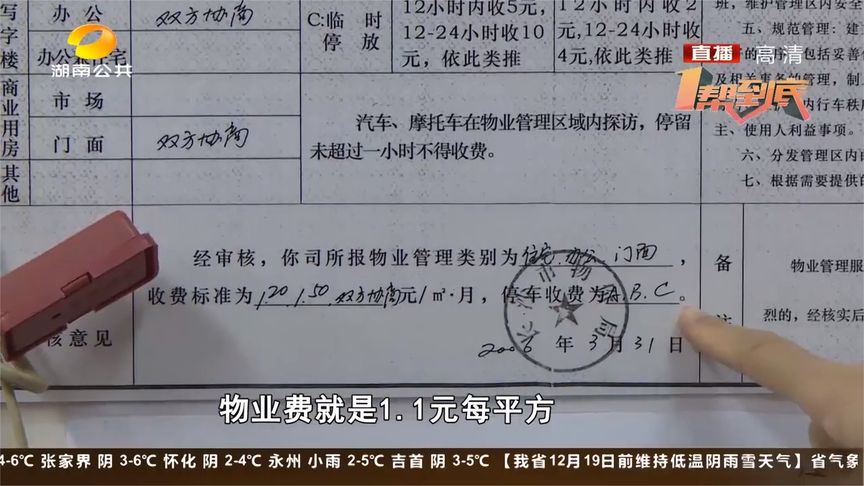 写字楼
办公
双方协商
办公兼住宅
商业用房
市场
门面
双方协商
其他
C:临时停放
12小时内收5元，
12-24小时收10
元，依此类推
12小时内收2
元,12-24小时收
4元,依此类推
汽车、摩托车在物业管理区域内探访，停留
未超过一小时不得收费。
班，维护管理区内安全
五、规范管理：建
包括妥善
及相关事务的管理，制
内行车秩
主、使用人利益事项。
六、分发管理区内
七、根据需要提供的
经审核，你司所报物业管理类别为住宅 办公 门面，
收费标准为1.20 1.50 双方协商元/㎡·月，停车收费为A.B.C。
核意见
2006年3月31日
备注
物业管理服
烈的，经核实后
湖南公共
直播
高清
1帮到底
物业费就是1.1元每平方
4-6℃ 张家界 阴 3-6℃ 怀化 阴 2-4℃ 永州 小雨 2-5℃ 吉首 阴 3-5℃ 【我省12月19日前维持低温阴雨雪天气】省气象